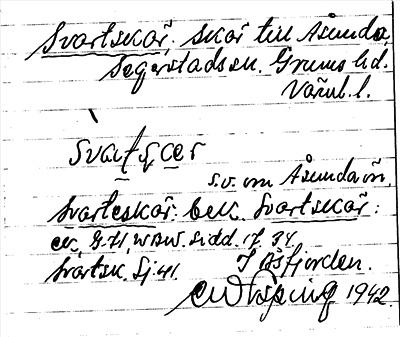 Svartskär. skär till Åsunda,
Segerstads sn. Grums hd.
Värml. l.
svatʂcer
s.v. om Åsundaön.
Svarteskär: bek. Svartskär:
ek. G.H, WBW. Sidd. 17. 34.
Svartsk. Sj: 41.
I Åsfjorden.
1942.